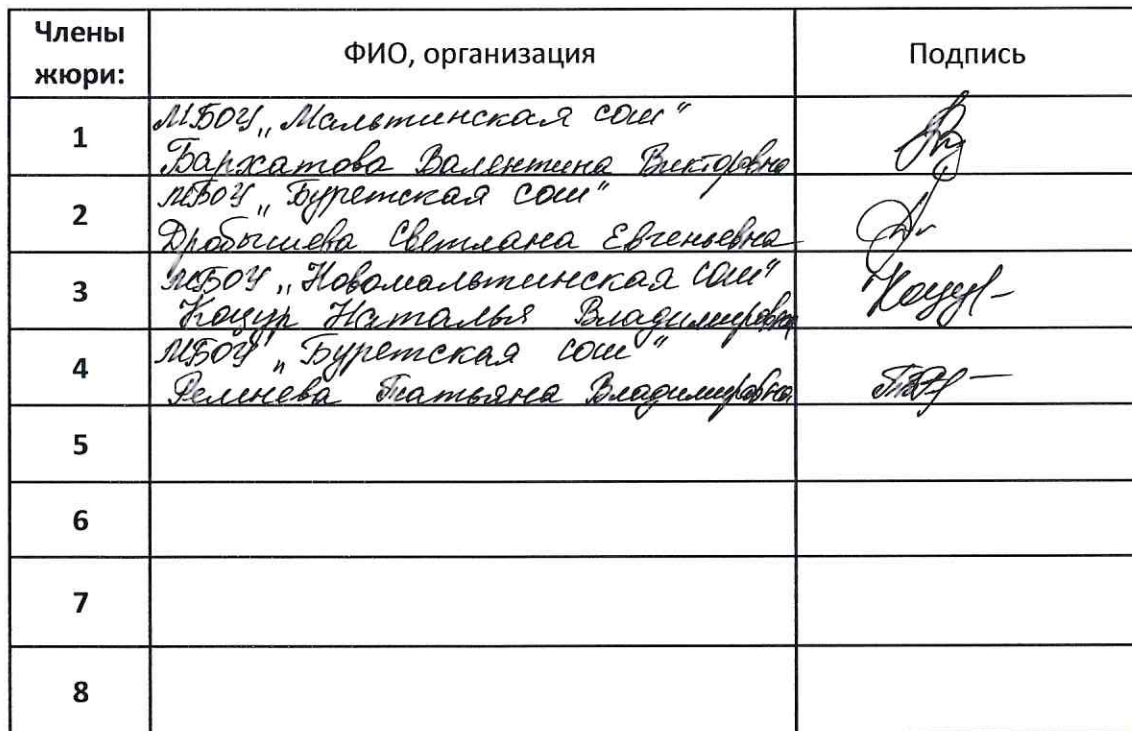 Члены жюри: ФИО, организация Подпись
1 МБОУ „Мальтинская сош"
Бархатова Валентина Викторовна
2 МБОУ „Буретская сош"
Дробышева Светлана Евгеньевна
3 МБОУ „Новомальтинская сош"
Коцур Наталья Владимировна Коцур
4 МБОУ „Буретская сош"
Ремнева Татьяна Владимировна
5
6
7
8